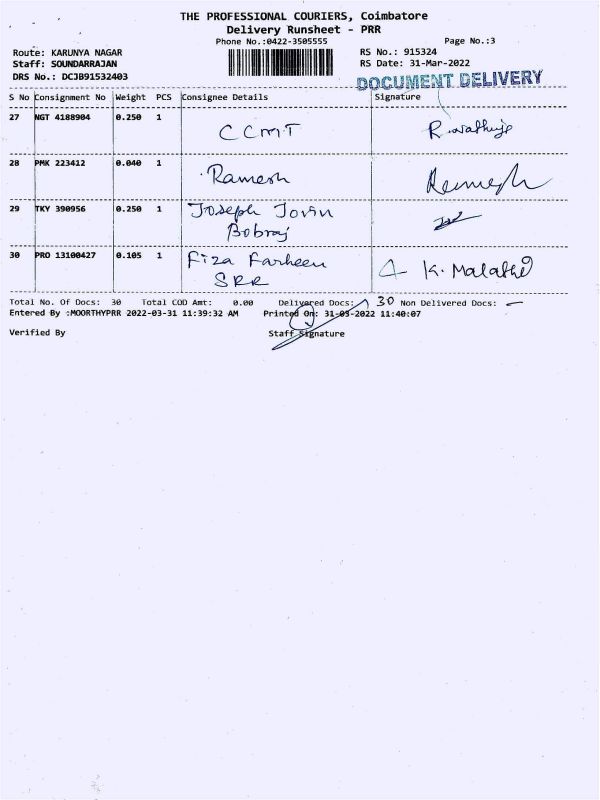 THE PROFESSIONAL COURIERS, Coimbatore
Delivery Runsheet - PRR
Phone No.:0422-3505555 Page No.:3
Route: KARUNYA NAGAR RS No.: 915324
Staff: SOUNDARRAJAN RS Date: 31-Mar-2022
DRS No.: DCJB91532403 DOCUMENT DELIVERY
S No Consignment No Weight PCS Consignee Details Signature
27 NGT 4188904 0.250 1 CCMT
28 PMK 223412 0.040 1 Ramesh Ramesh
29 TKY 390956 0.250 1 Joseph Jovin
Bobraj
30 PRO 13100427 0.105 1 Fiza Farheen K. Malathi
SRR
Total No. Of Docs: 30 Total COD Amt: 0.00 Delivered Docs: 30 Non Delivered Docs: -
Entered By :MOORTHYPRR 2022-03-31 11:39:32 AM Printed On: 31-03-2022 11:40:07
Verified By Staff Signature